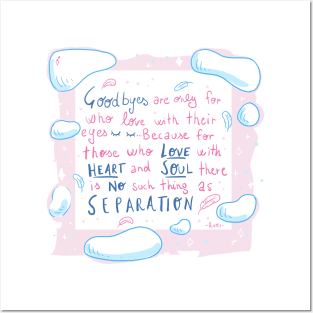 Goodbyes are only for
who love with their
eyes ~ ~.. Because for
those who LOVE with
HEART and SOUL there
is NO such thing as
SEPARATION
-Rumi-